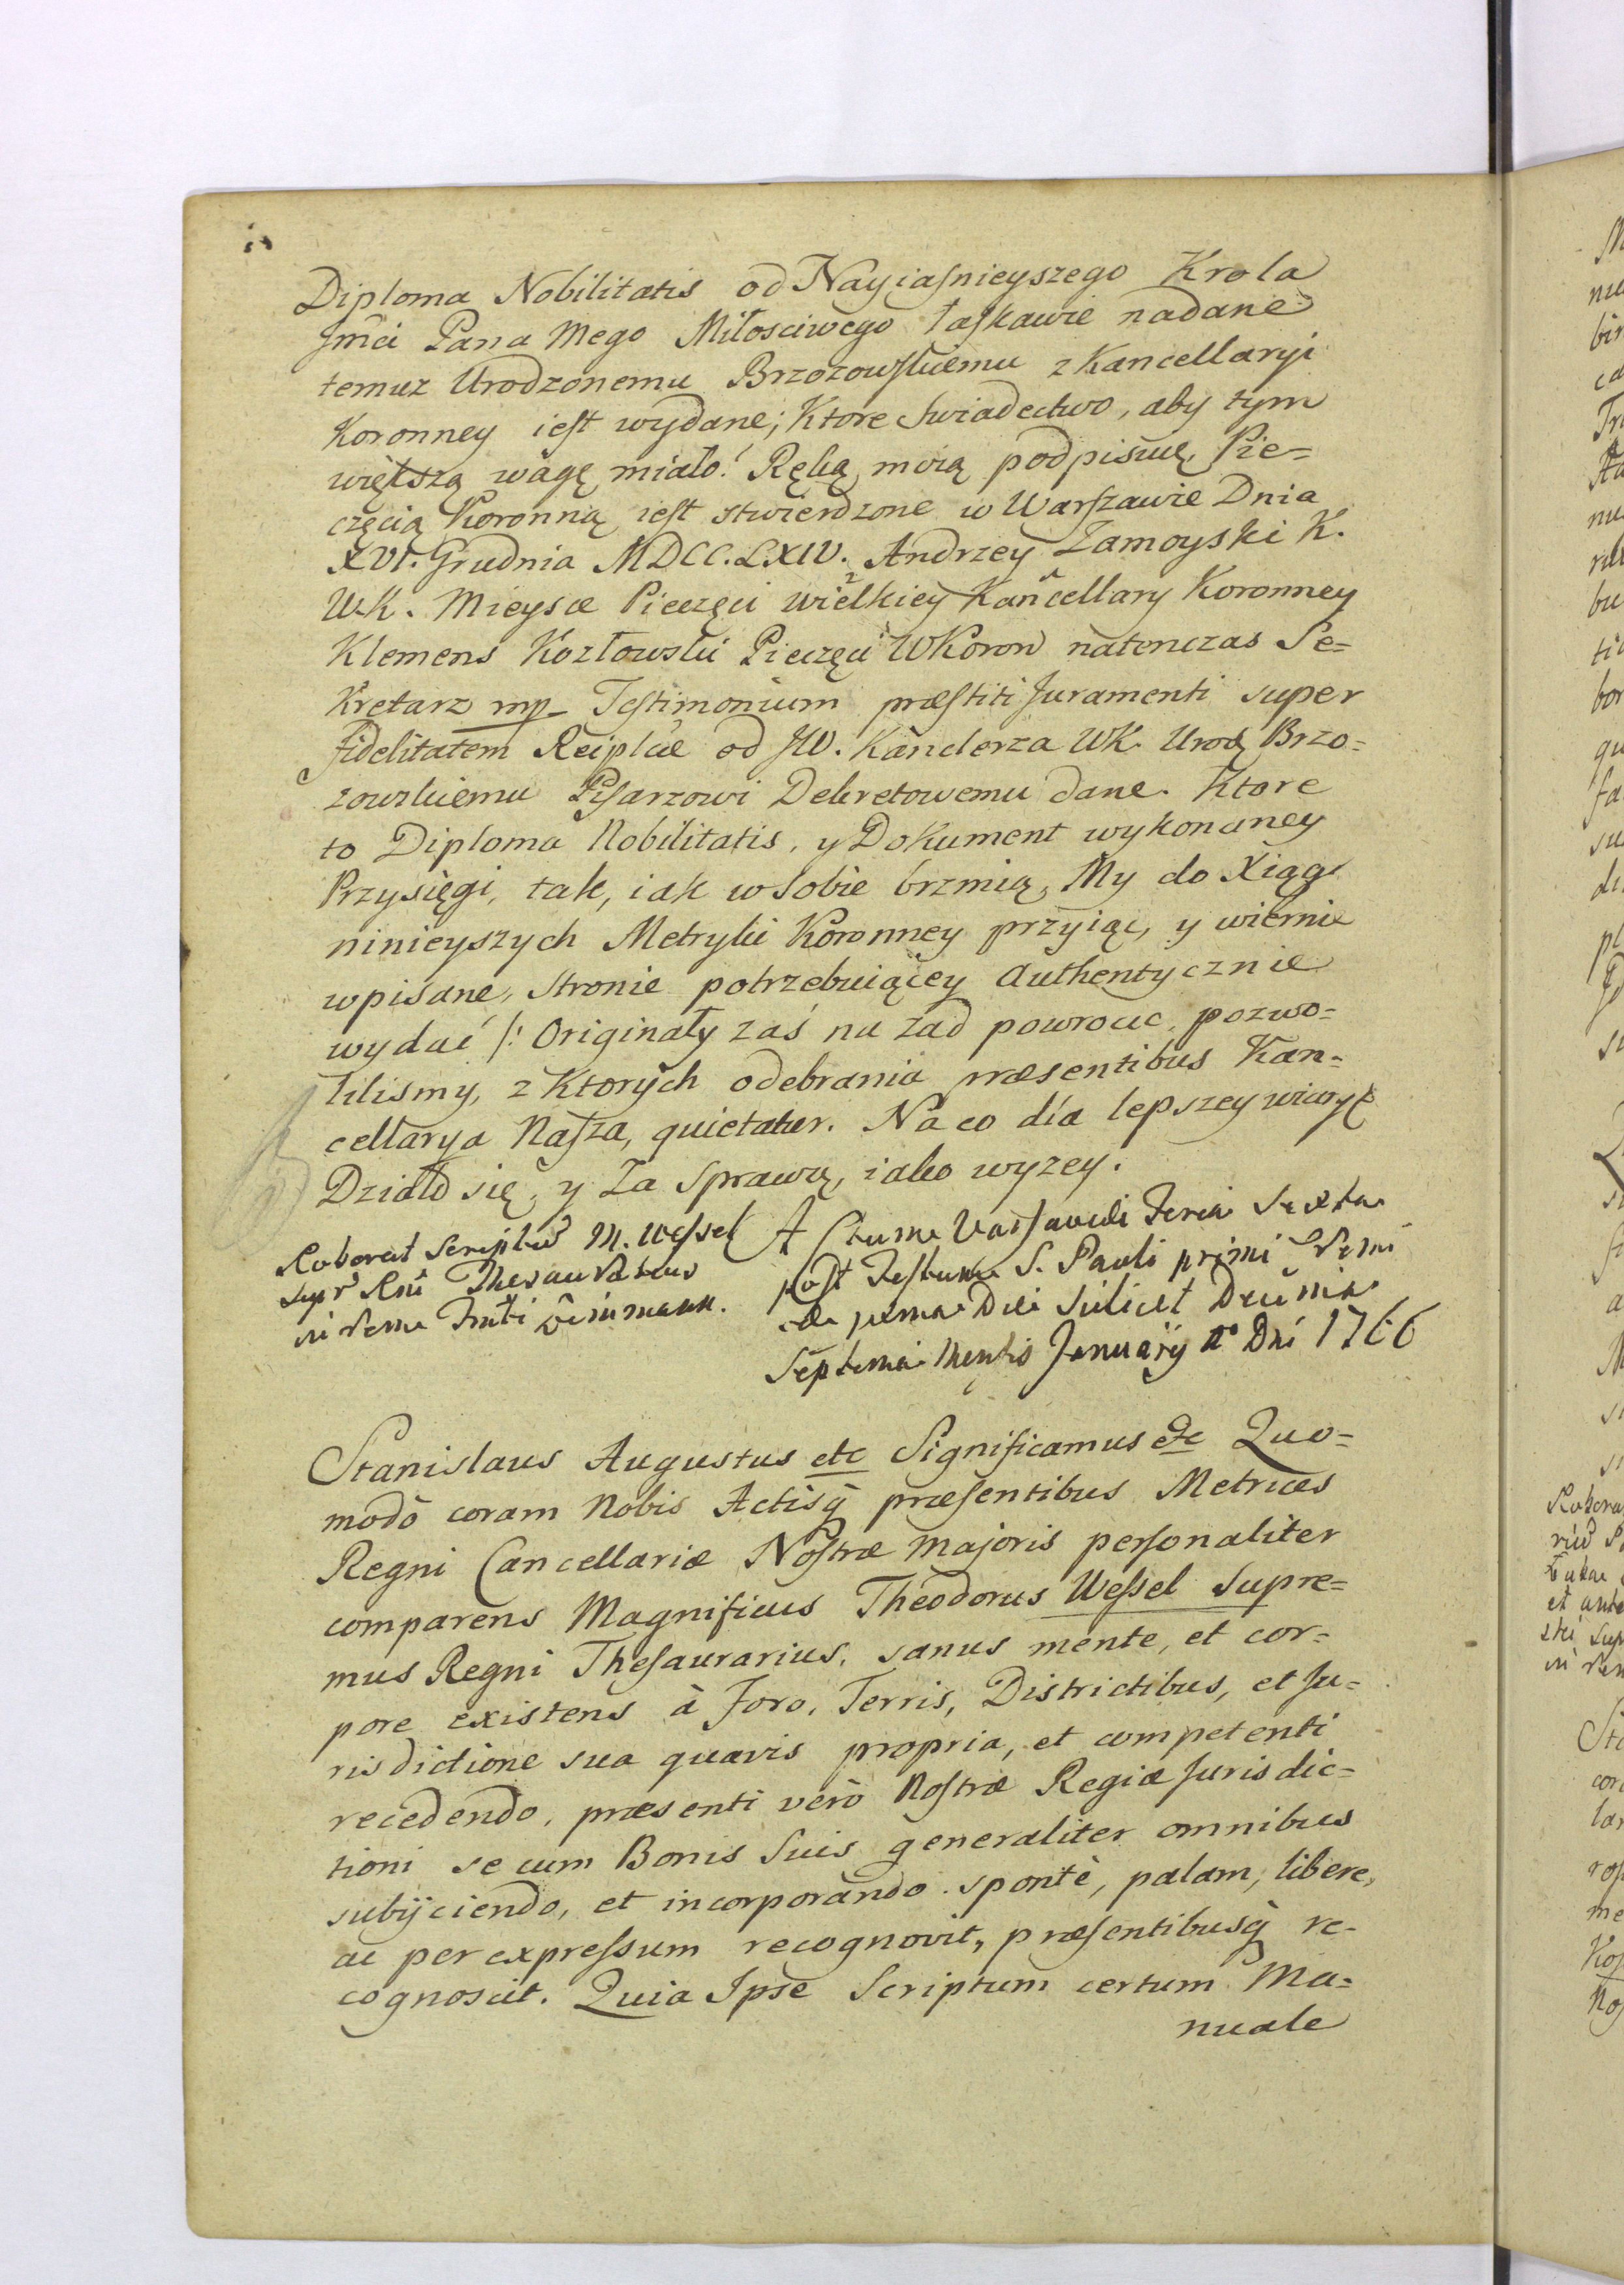 Diploma Nobilitatis od Nayiaśnieyszego Krola
Jmci Pana Mego Miłosciwego łaskawie nadane
temuz Urodzonemu Brzozowskiemu z Kancellaryi
Koronney iest wydane; Ktore swiadectwo, aby tym
większą wagę miało! Ręką moią podpisuię, Pie=
częcią Koronną iest stwierdzone w Warszawie Dnia
XVI. Grudnia MDCC.LXIV. Andrzey Zamoyski K.
W.K. Mieysce Pieczęci wielkiey Kancellary Koronney
Klemens Kozłowski Pieczęci WKoron natenczas Se=
kretarz mp Testimonium præstiti Juramenti super
Fidelitatem Reiplcæ od JW. Kanclerza WK. Urod. Brzo=
zowskiemu Pisarzowi Dekretowemu dane. Ktore
to Diploma Nobilitatis, y Dokument wykonaney
Przysięgi, tak, iak w sobie brzmią, My do Xiąg
ninieyszych Metryki Koronney przyiąc, y wiernie
wpisane, stronie potrzebuiącey Authentycznie
wydać /: Originały zaś na zad powrocic, pozwo=
lilismy, z Ktorych odebrania præsentibus Kan=
cellarya Nasza, quietatur. Na co dla lepszey wiary &
Działo się, y Za Sprawą, iako wyzey.
Roborat Scriptū M. Wessel
Supr Rni Thesaurarius
A Ctum Varsaviæ Feria Sexta
post Festum S. Pauli primi
Die scilicet Decima
Septima Mensis Januarij Aº Dni 1766
Stanislaus Augustus etc Significamus etc Quo=
modò coram Nobis Actisq̀ præsentibus Metrices
Regni Cancellariæ Nostræ Majoris personaliter
comparens Magnificus Theodorus Wessel Supre=
mus Regni Thesaurarius, sanus mente, et cor=
pore existens à Foro, Terris, Districtibus, et Ju=
risdictione sua quavis propria, et competenti
recedendo, præsenti verò Nostræ Regiæ Jurisdic=
tioni se cum Bonis Suis generaliter omnibus
subijciendo, et incorporando sponte, palam, libere,
ac per expressum recognovit, præsentibusq̀ re-
cognoscit. Quia Ipse Scriptum certum Ma=
nuale